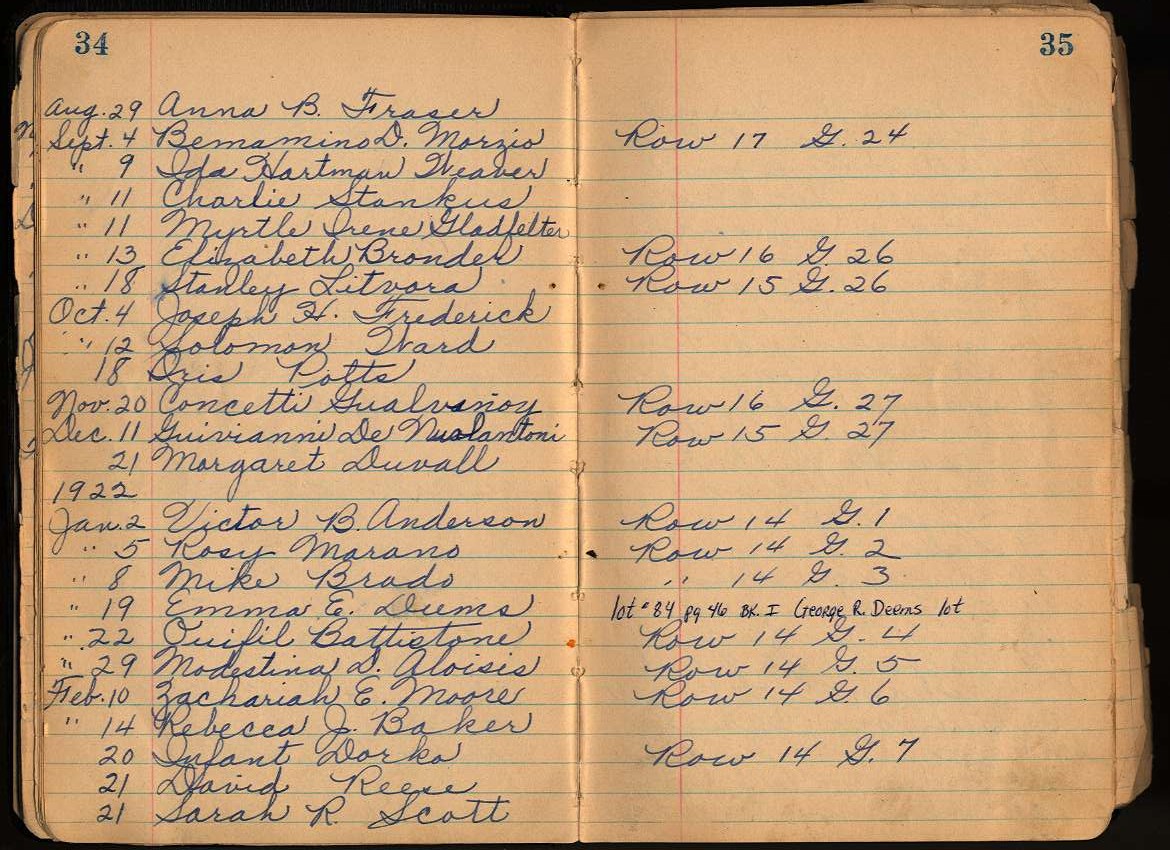 34
35
Aug. 29 Anna B. Fraser
Sept. 4 Bemamino D. Morzio Row 17 G. 24
" 9 Ida Hartman Weaver
" 11 Charlie Stankus
" 11 Myrtle Irene Gladfelter
" 13 Elizabeth Bronder Row 16 G. 26
" 18 Stanley Litvora Row 15 G. 26
Oct. 4 Joseph H. Frederick
" 12 Solomon Ward
18 Potts
Nov. 20 Concetti Row 16 G. 27
Dec. 11 Guivianni De Row 15 G. 27
21 Margaret Duvall
1922
Jan. 2 Victor B. Anderson Row 14 G. 1
" 5 Rosy Marano Row 14 G. 2
" 8 Mike Brado " 14 G. 3
" 19 Emma E. Diems lot #84 pg 46 BK. I George R. Deems lot
" 22 Battistone Row 14 G. 4
" 29 Modestina D. Aloisis Row 14 G. 5
Feb. 10 Zachariah E. Moore Row 14 G. 6
" 14 Rebecca J. Baker
20 Infant Dorko Row 14 G. 7
21 David Reese
21 Sarah R. Scott